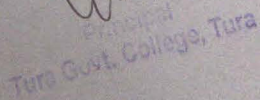 Principal
Tura Govt. College, Tura